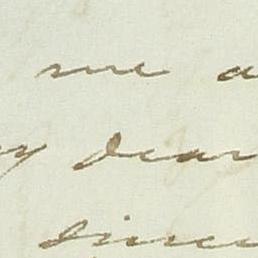 me a
y dear
since